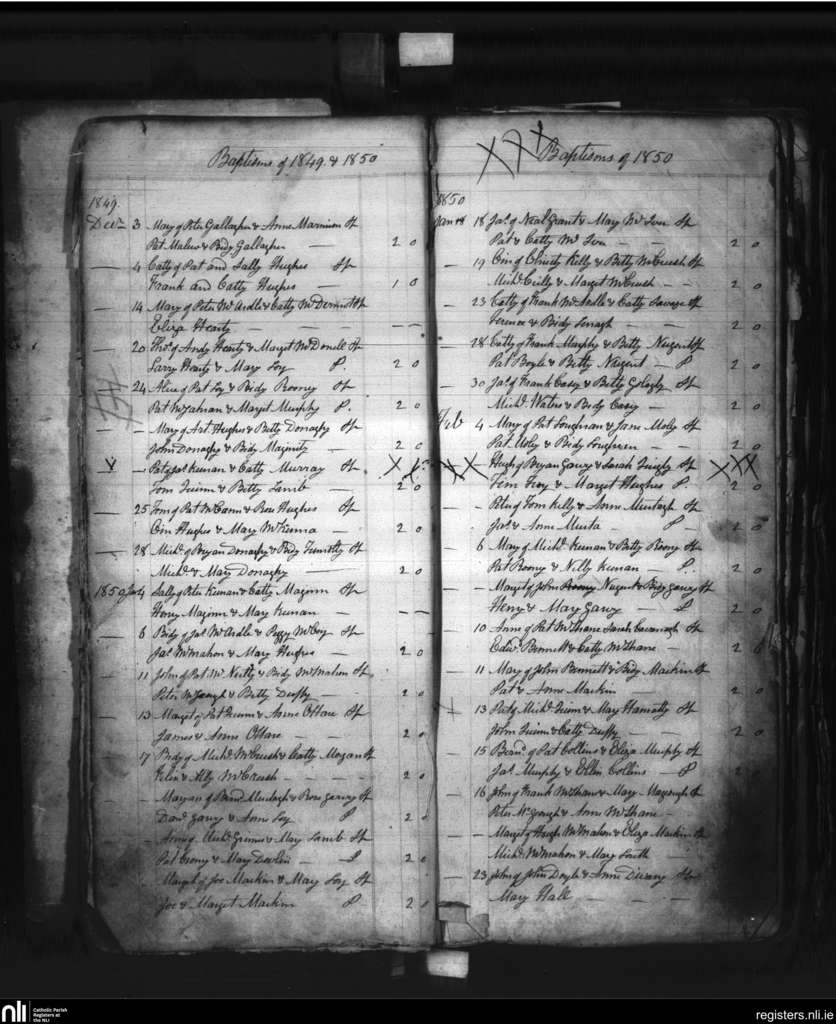 Baptisms of 1849 & 1850
1849.
Decr 3 Mary of Peter Gallagher & Anne Marmion Sp
Pat Malew & Bidy Gallagher — 2 0
— 4 Catty of Pat and Sally Hughes Sp
Frank and Catty Hughes — 1 0
— 14 Mary of Peter McArdle & Catty McDermott Sp
Eliza Hearty — — — —
— 20 Thos. of Andy Hearty & Margt McDonell Sp
Larry Hearty & Mary Loy P. 2 0
24 Alice of Pat Loy & Bidy Rooney Sp
Pat & Margt Murphy P. 2 0
— Mary of Art Hughes & Betty Donaghy Sp
John Donaghy & Bidy Maginity — 2 0
X — Pat of Jas Keenan & Catty Murray Sp X X
Tom Quinn & Betty Lamb — 2 0
— 25 Tom of Pat McCann & Rose Hughes Sp
Hughes & Mary McKenna — 2 0
— 28 Michl of Bryan Donaghy & Bidy Sp
Michl & Mary Donaghy — 2 0
1850 Jan 4 Sally of Peter Keenan & Catty Maginn Sp
Henry Maginn & Mary Keenan — — —
— 6 Bidy of Jas McArdle & Peggy McCoy Sp
Jas McMahon & Mary Hughes — 2 0
— 11 John of Pat & Bidy McMahon Sp
Peter & Betty Duffy — 2 0
— 13 Margt of Pat Quinn & Anne OHare Sp
James & Anne OHare — 2 0
— 17 Bidy of Michl McCreesh & Catty Sp
& McCreesh — — — 2 0
— Maryan of Bernd Murtagh & Rose Garvy Sp
Danl Garvy & Anne Loy P 2 0
— Anne of Michl & Mary Lamb Sp
Pat & Mary Devlin — P 2 0
— Margt of Joe Mackin & Mary Loy Sp
Joe & Margt Mackin P 2 0
X X X Baptisms of 1850
1850
Jan 18 Jas. of Neal Grant & Mary Sp
Pat & Catty — — 2 0
— 19 of Christy Kelly & Betty McCreesh Sp
Michl & Margt McCreesh — 2 0
— 23 Catty of Frank McArdle & Catty Savage Sp
Terence & Bidy — — 2 0
— 28 Catty of Frank Murphy & Betty Nugent Sp
Pat Boyle & Betty Nugent — P 2 0
— 30 Jas. of Frank Casey & Betty Sp
Michl Waters & Bidy Casey — 2 0
Feb 4 Mary of Pat Loughran & Jane Sp
Pat & Bidy Loughran — 2 0
X X X — Hugh of Bryan Garvy & Sarah Quigly Sp X X X
& Margt Hughes P 2 0
— Peter of Tom Kelly & Anne Murtagh Sp
Jas. & Anne P 2 0
— 6 Mary of Michl Keenan & Betty Roony Sp
Pat Roony & Nelly Keenan — P. 2 0
— Margt of John Nugent & Bidy Garvy Sp
Henry & Mary Garvy — P 2 0
— 10 Anne of Pat McShane Sarah Cavanagh Sp
Edwd Bennett & Catty McShane — 2 0
— 11 Mary of John Bennett & Bidy Mackin Sp
Pat & Anne Mackin — 2 0
— 13 Pat of Michl Quinn & Mary Sp
John Quinn & Catty Duffy — 2 0
— 15 Bernd of Pat Collins & Eliza Murphy Sp
Jas. Murphy & Ellen Collins — P 2 0
— 16 John of Frank McShane & Mary Sp
Peter & Anne McShane —
— Margt of Hugh McMahon & Eliza Mackin Sp
Michl McMahon & Mary —
— 23 John of John Doyle & Anne Sp
Mary Hall — — —
nli
Catholic Parish
Registers at
the NLI
registers.nli.ie